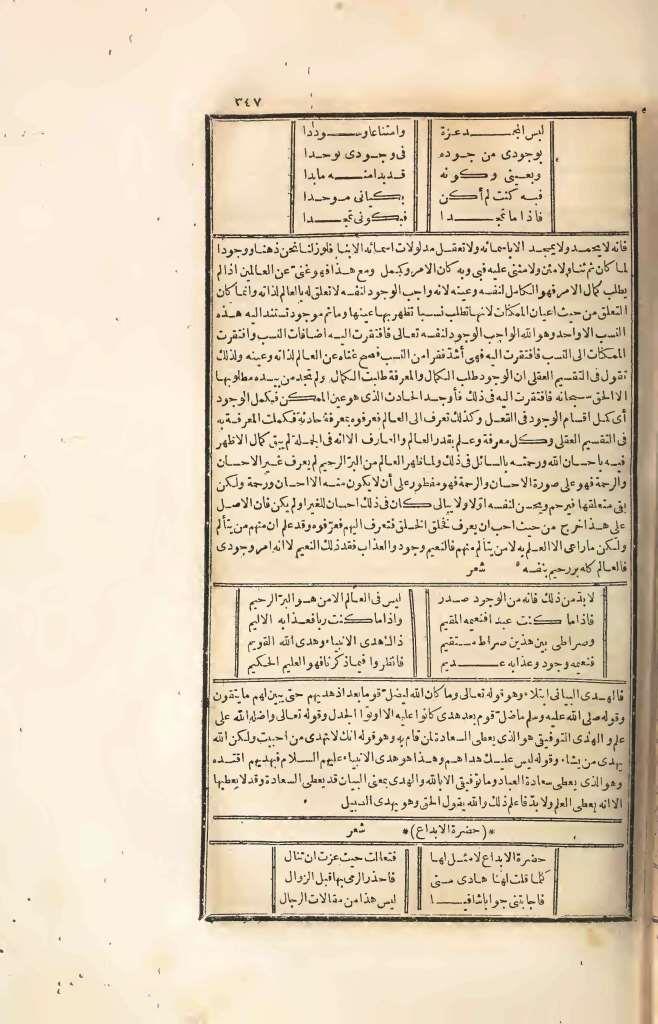 ٣٤٧
ليس المجد عزة وامتناعا وسوددا
بوجودى من جوده فى وجودى توحدا
وبعينى وكونه قديدا منه مابدا
فبه كنت لم أكن بكيانى موحدا
فاذا ما تمجدا فبكونى تمجدا
فانه لا يحمد ولا يمجد الا باسمائه ولا تعقل مدلولات اسمائه الا بنا فلو زلنا نحن ذهنا ووجودا
لما كان ثم ثناء ولا مثن ولا مثنى عليه فبى وبه كان الامر وكمل ومع هذا فهو غنى عن العالمين اذ لم
يطلب كمال الامر فهو الكامل لنفسه وعينه لانه واجب الوجود لنفسه لا تعلق له بالعالم لذاته وانما كان
التعلق من حيث اعيان الممكنات لانها تطلب نسبا تظهر بها عينها وما ثم موجود تستند اليه هذه
النسب الا واحد وهو الله الواجب الوجود لنفسه تعالى فافتقرت اليه اضافات النسب وافتقرت
الممكنات الى النسب فافتقرت اليه فهى أشد فقرا من النسب فصح غناه عن العالم لذاته وعينه ولذلك
تقول فى التقسيم العقلى ان الوجود طلب الكمال والمعرفة طلبت الكمال ولم تجد من بيده مطلوبها
الا الحق سبحانه فافتقرت اليه فى ذلك فأوجد الحادث الذى هو عين الممكن فكمل الوجود
أى كمل اقسام الوجود فى العقل وكذلك تعرف الى العالم فعرفوه بمعرفة حادثة فكملت المعرفة به
فى التقسيم العقلى وكل معرفة وعلم بقدر العالم والعارف الا انه فى الجملة لم يبق كمال الا ظهر
فيه باحسان الله ورحمته بالسائل فى ذلك ولما ظهر العالم من البر الرحيم لم يعرف غير الاحسان
والرحمة فهو على صورة الاحسان والرحمة فهو مفطور على أن لا يكون منه الا احسان ورحمة ولكن
بقى متعلقها فيرحم ويحسن لنفسه اولا ولا يبالى كان فى ذلك احسان للغير او لم يكن فان الاصل
على هذا خرج من حيث احب ان يعرف فخلق الخلق فتعرف اليهم فعرفوه وقد علم ان منهم من يتألم
ولكن ما راعى الا العلم به لا من يتألم منهم فالنعيم وجود والعذاب فقد ذلك النعيم لا انه امر وجودى
فالعالم كله بر رحيم بنفسه شعر
لا بد من ذلك فانه من الوجود صدر ليس فى العالم الا من هو البر الرحيم
فاذا ما كنت عبدا فنعيمه المقيم واذا ما كنت ربا فعذابه الاليم
وصراطى بين هذين صراط مستقيم ذاك هدى الانبياء وهدى الله القويم
فنعيمه وجود وعذابه عديم فانظروا فيما ذكرنا فهو العليم الحكيم
فالهدى البيانى ابتلاء وهو قوله تعالى وما كان الله ليضل قوما بعد اذ هديهم حتى يبين لهم ما يتقون
وقوله صلى الله عليه وسلم ما ضل قوم بعد هدى كانوا عليه الا اوتوا الجدل وقوله تعالى واضله الله على
علم والهدى التوفيقى هو الذى يعطى السعادة لمن قام به وهو قوله انك لا تهدى من احببت ولكن الله
يهدى من يشاء وقوله ليس عليك هداهم وهذا هو هدى الانبياء عليهم السلام فبهديهم اقتده
وهو الذى يعطى سعادة العباد وما توفيقى الا بالله والهدى بمعنى البيان قد يعطى السعادة وقد لا يعطيها
الا انه يعطى العلم ولا بد فاعلم ذلك والله يقول الحق وهو يهدى السبيل
*(حضرة الابداع)* شعر
حضرة الابداع لا مثل لها فتعالت حيث عزت ان تنال
كلما قلت لها هادى متى فاحذر الرمى بها قبل الزوال
فاجابتنى جوابا شافيا ليس هذا من مقالات الرجال